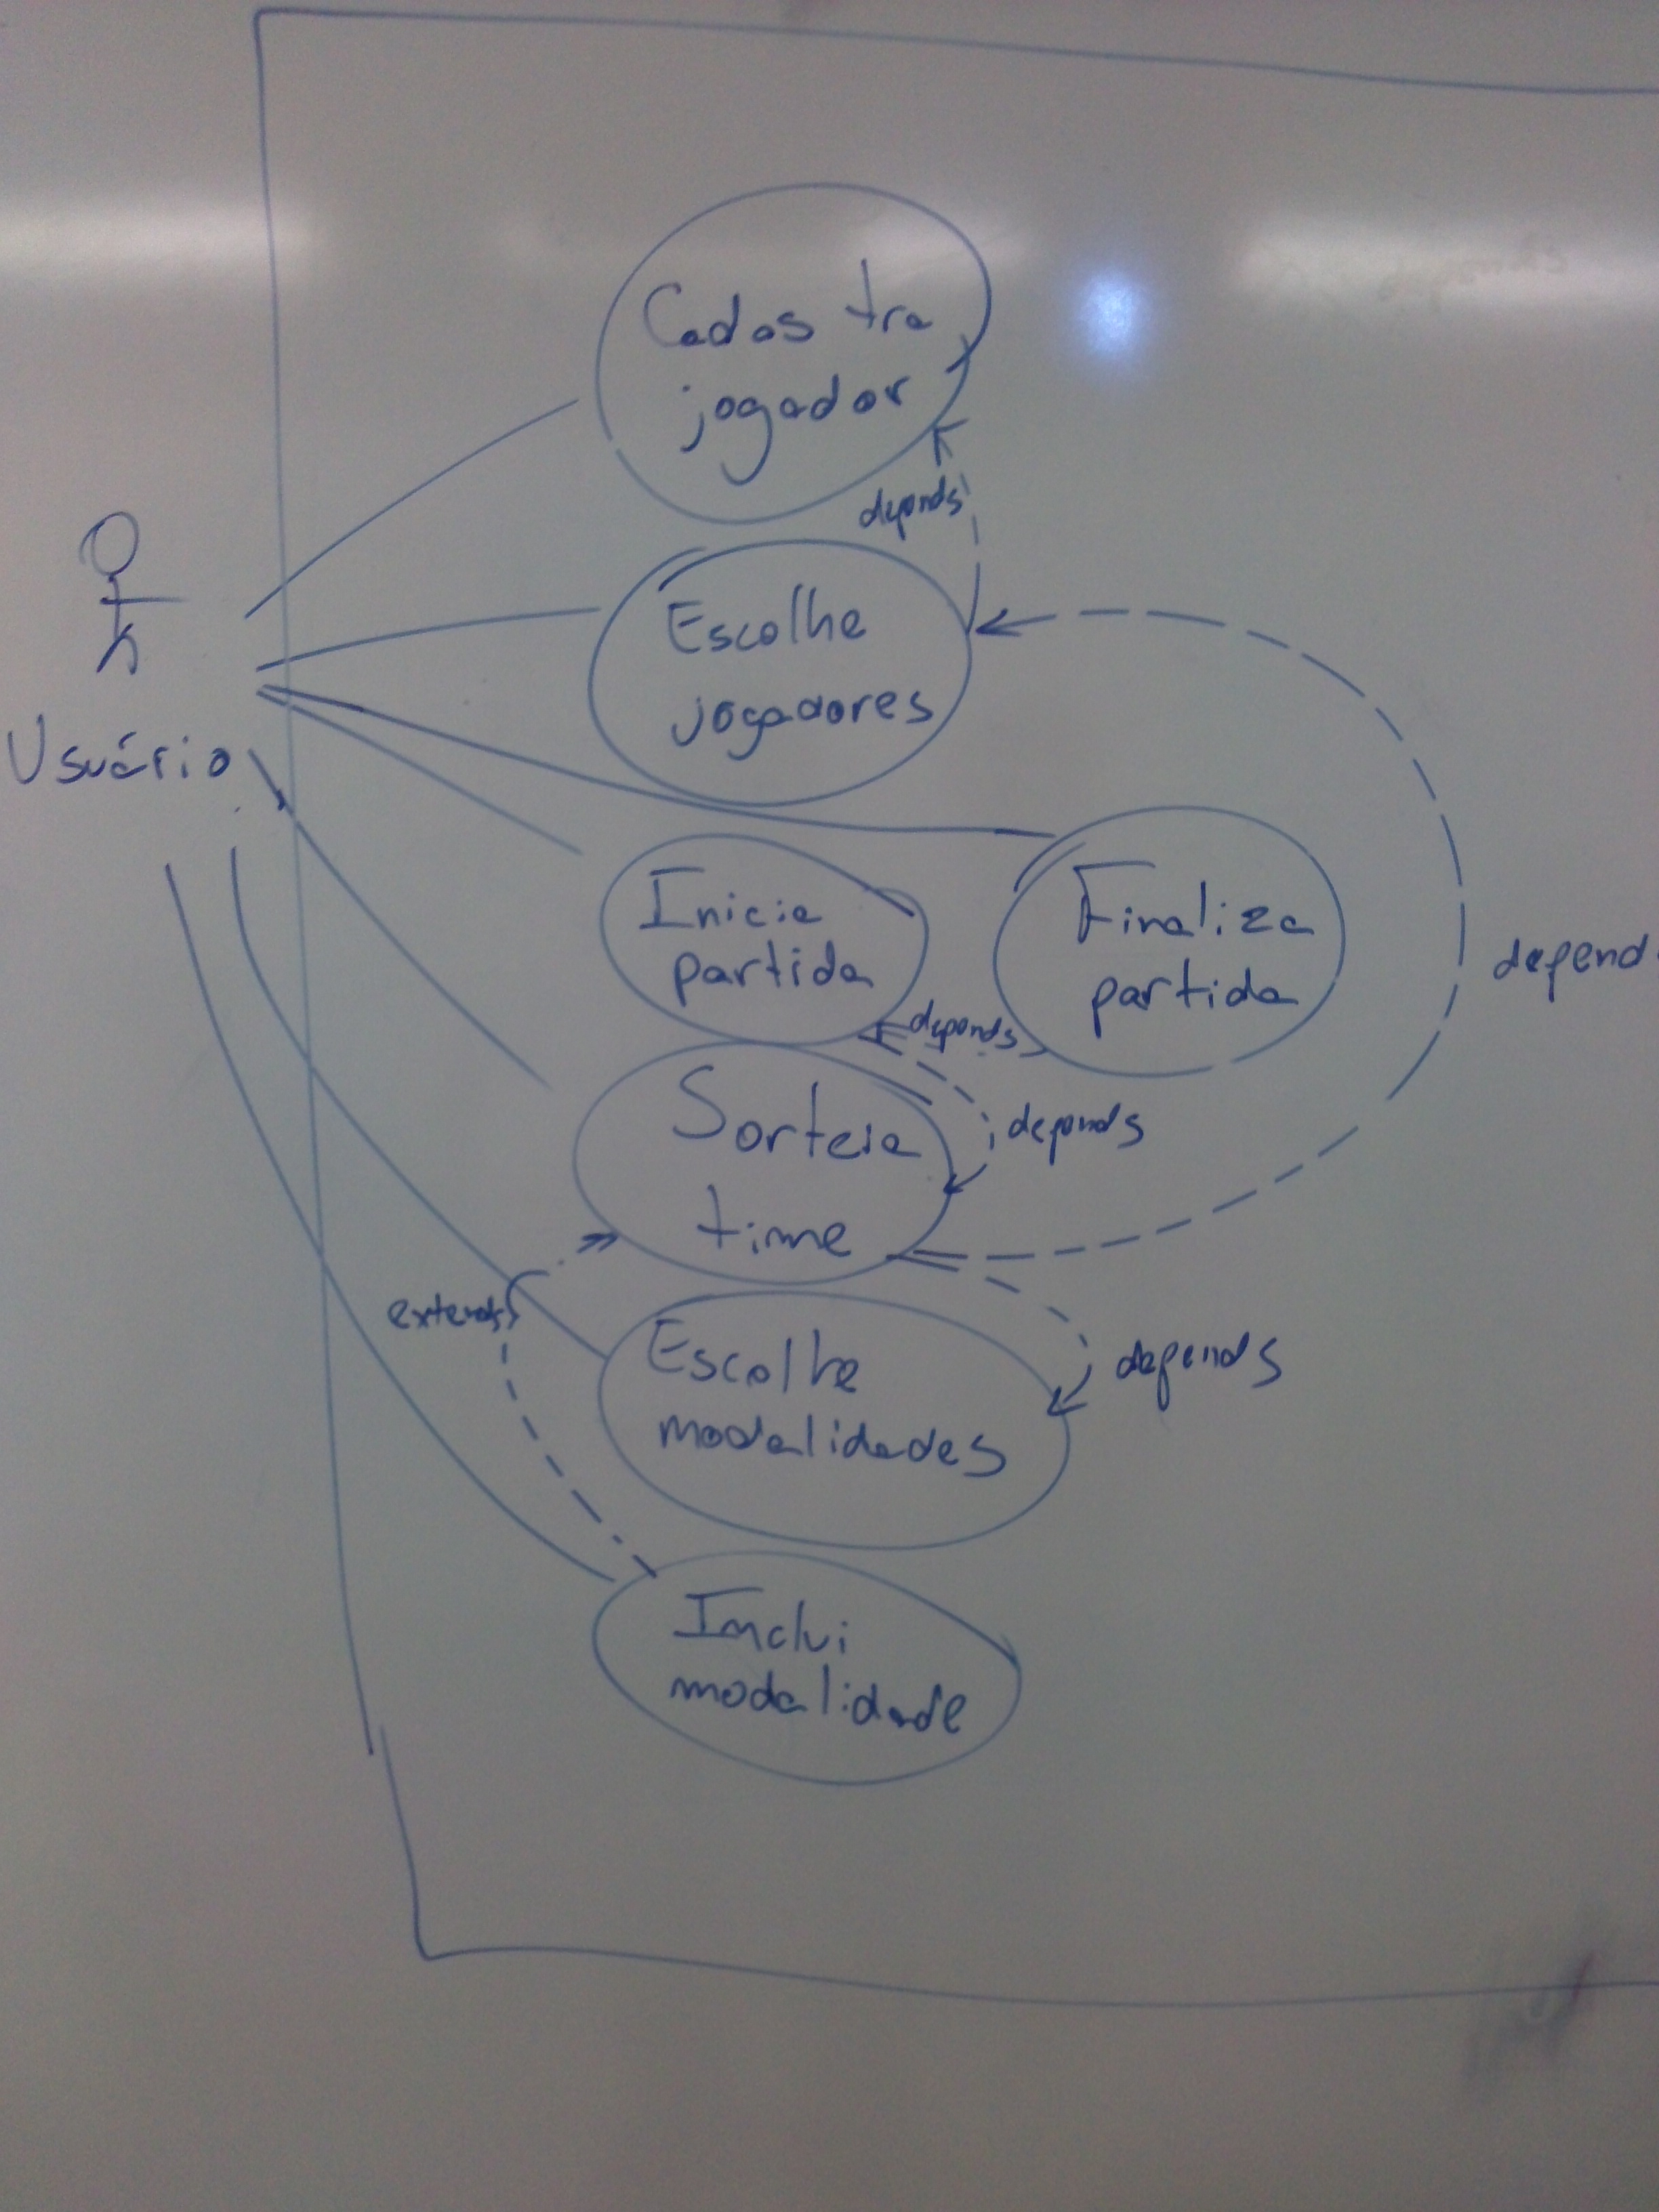 Cadastra
jogador
depends
Escolhe
jogadores
Usuário
Inicia
partida
Finaliza
partida
depend
depends
Sorteia
time
depends
extends
Escolhe
modalidades
depends
Inclui
modalidade